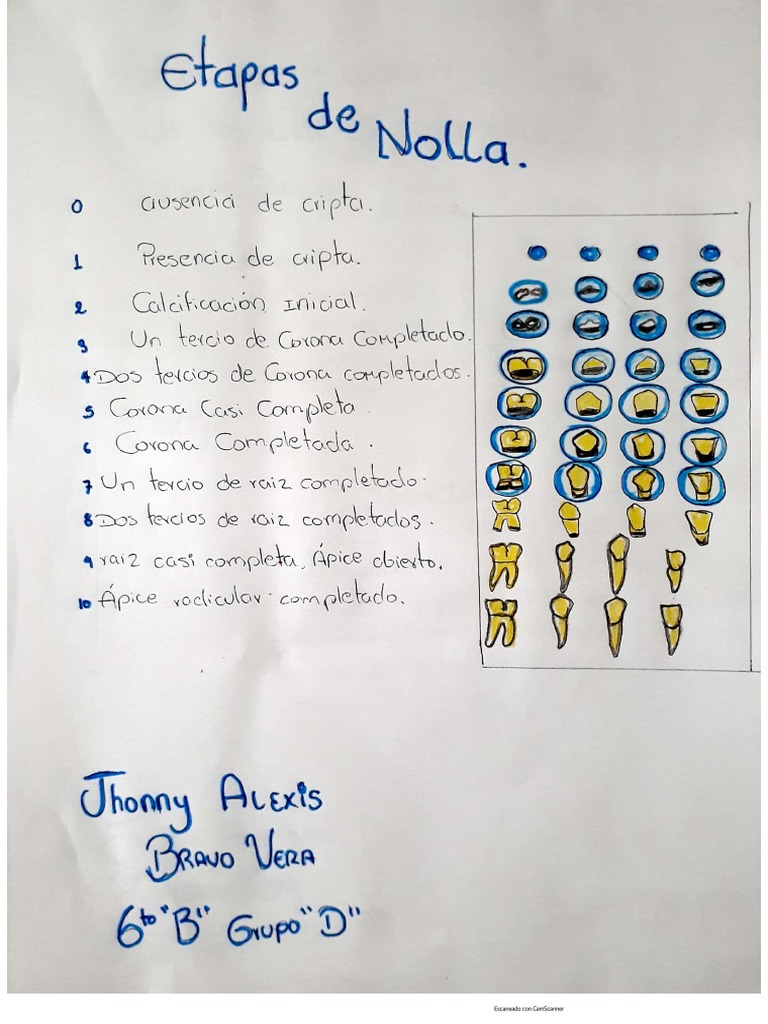 Etapas
de Nolla.
0 ausencia de cripta.
1 Presencia de cripta.
2 Calcificación Inicial.
3 Un tercio de Corona Completado.
4 Dos tercios de Corona completados.
5 Corona Casi Completa
6 Corona Completada.
7 Un tercio de raiz completado.
8 Dos tercios de raiz completados.
9 raiz casi completa, Ápice abierto.
10 Ápice radicular completado.
Jhonny Alexis
Bravo Vera
6to "B" Grupo "D"
Escaneado con CamScanner